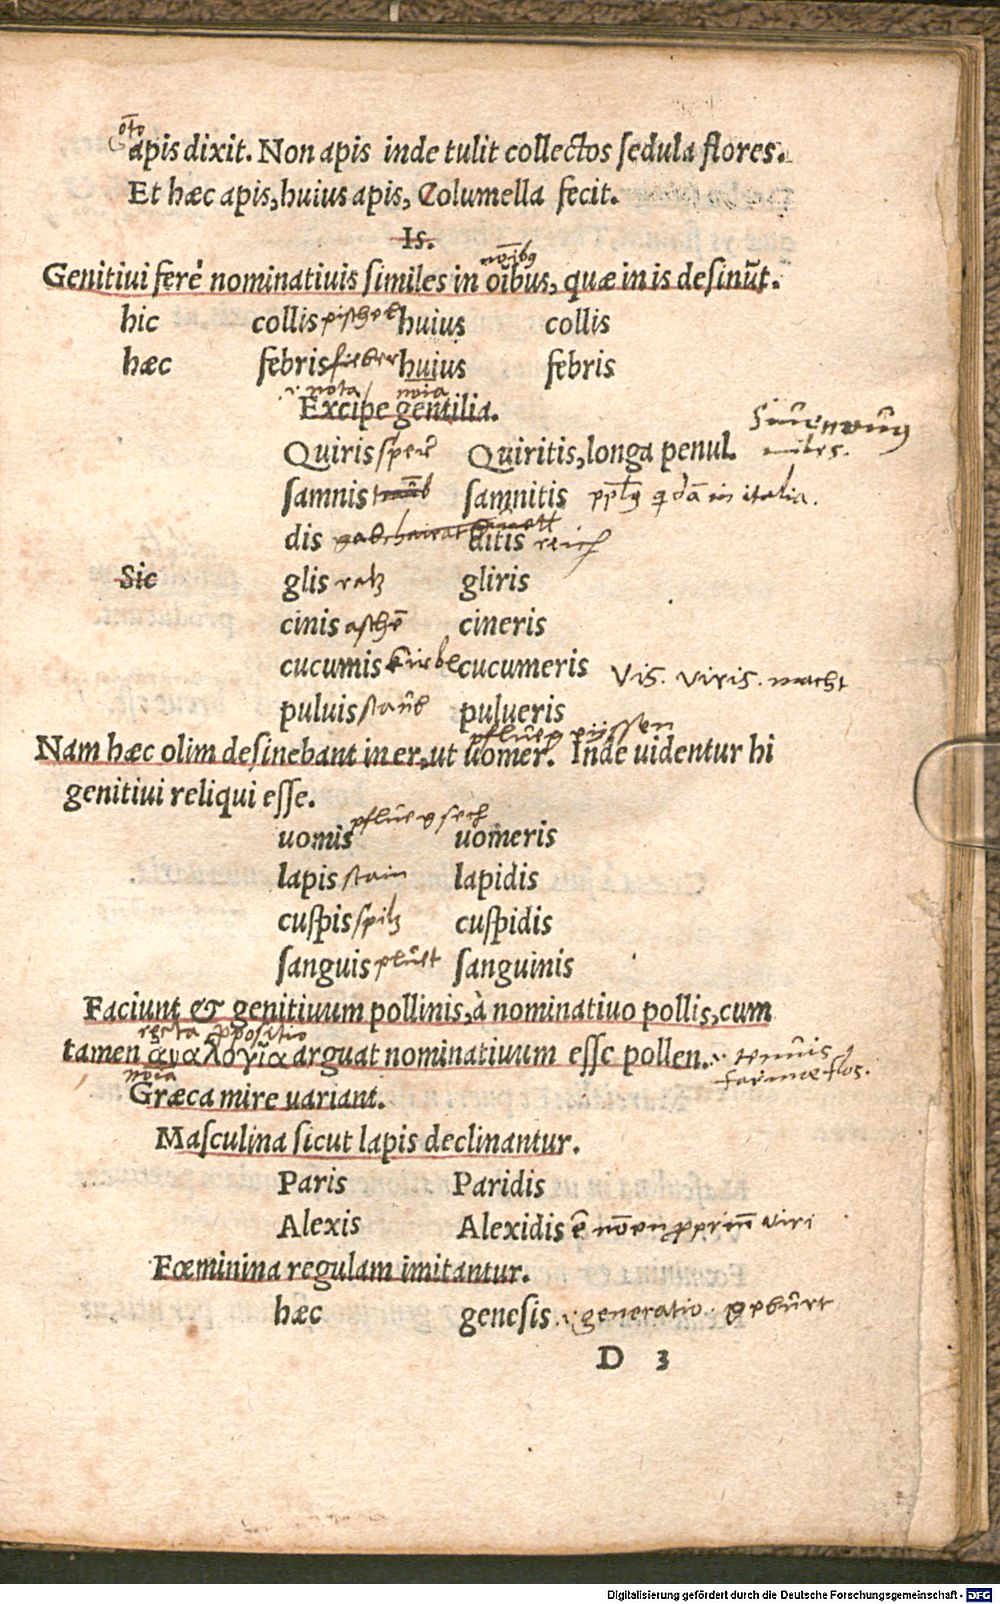 apis dixit. Non apis inde tulit collectos sedula flores.
Et hæc apis, huius apis, Columella fecit.
Is.
nōibꝰ
Genitiui ferè nominatiuis similes in oībus, quæ in is desinūt.
hic collis huius collis
hæc febris fieber huius febris
nota noīa
Excipe gentilia.
Quiris Quiritis, longa penul.
samnis samnitis in italia.
dis ditis reich
Sic glis ratz gliris
cinis aschē cineris
cucumis kirbs cucumeris Vis. viris. macht
puluis staub pulueris
Nam hæc olim desinebant in er, ut uomer. Inde uidentur hi
genitiui reliqui esse.
pflueg sech
uomis uomeris
lapis stain lapidis
cuspis spitz cuspidis
sanguis pluet sanguinis
Faciunt & genitiuum pollinis, à nominatiuo pollis, cum
recta ꝓpositio
tamen ἀναλογία arguat nominatiuum esse pollen. tenuis
farinæ flos.
noīa
Græca mire uariant.
Masculina sicut lapis declinantur.
Paris Paridis
Alexis Alexidis ē nomen ꝓpriū viri
Fœminina regulam imitantur.
hæc genesis .i. generatio. geburt
D 3
Digitalisierung gefördert durch die Deutsche Forschungsgemeinschaft - DFG